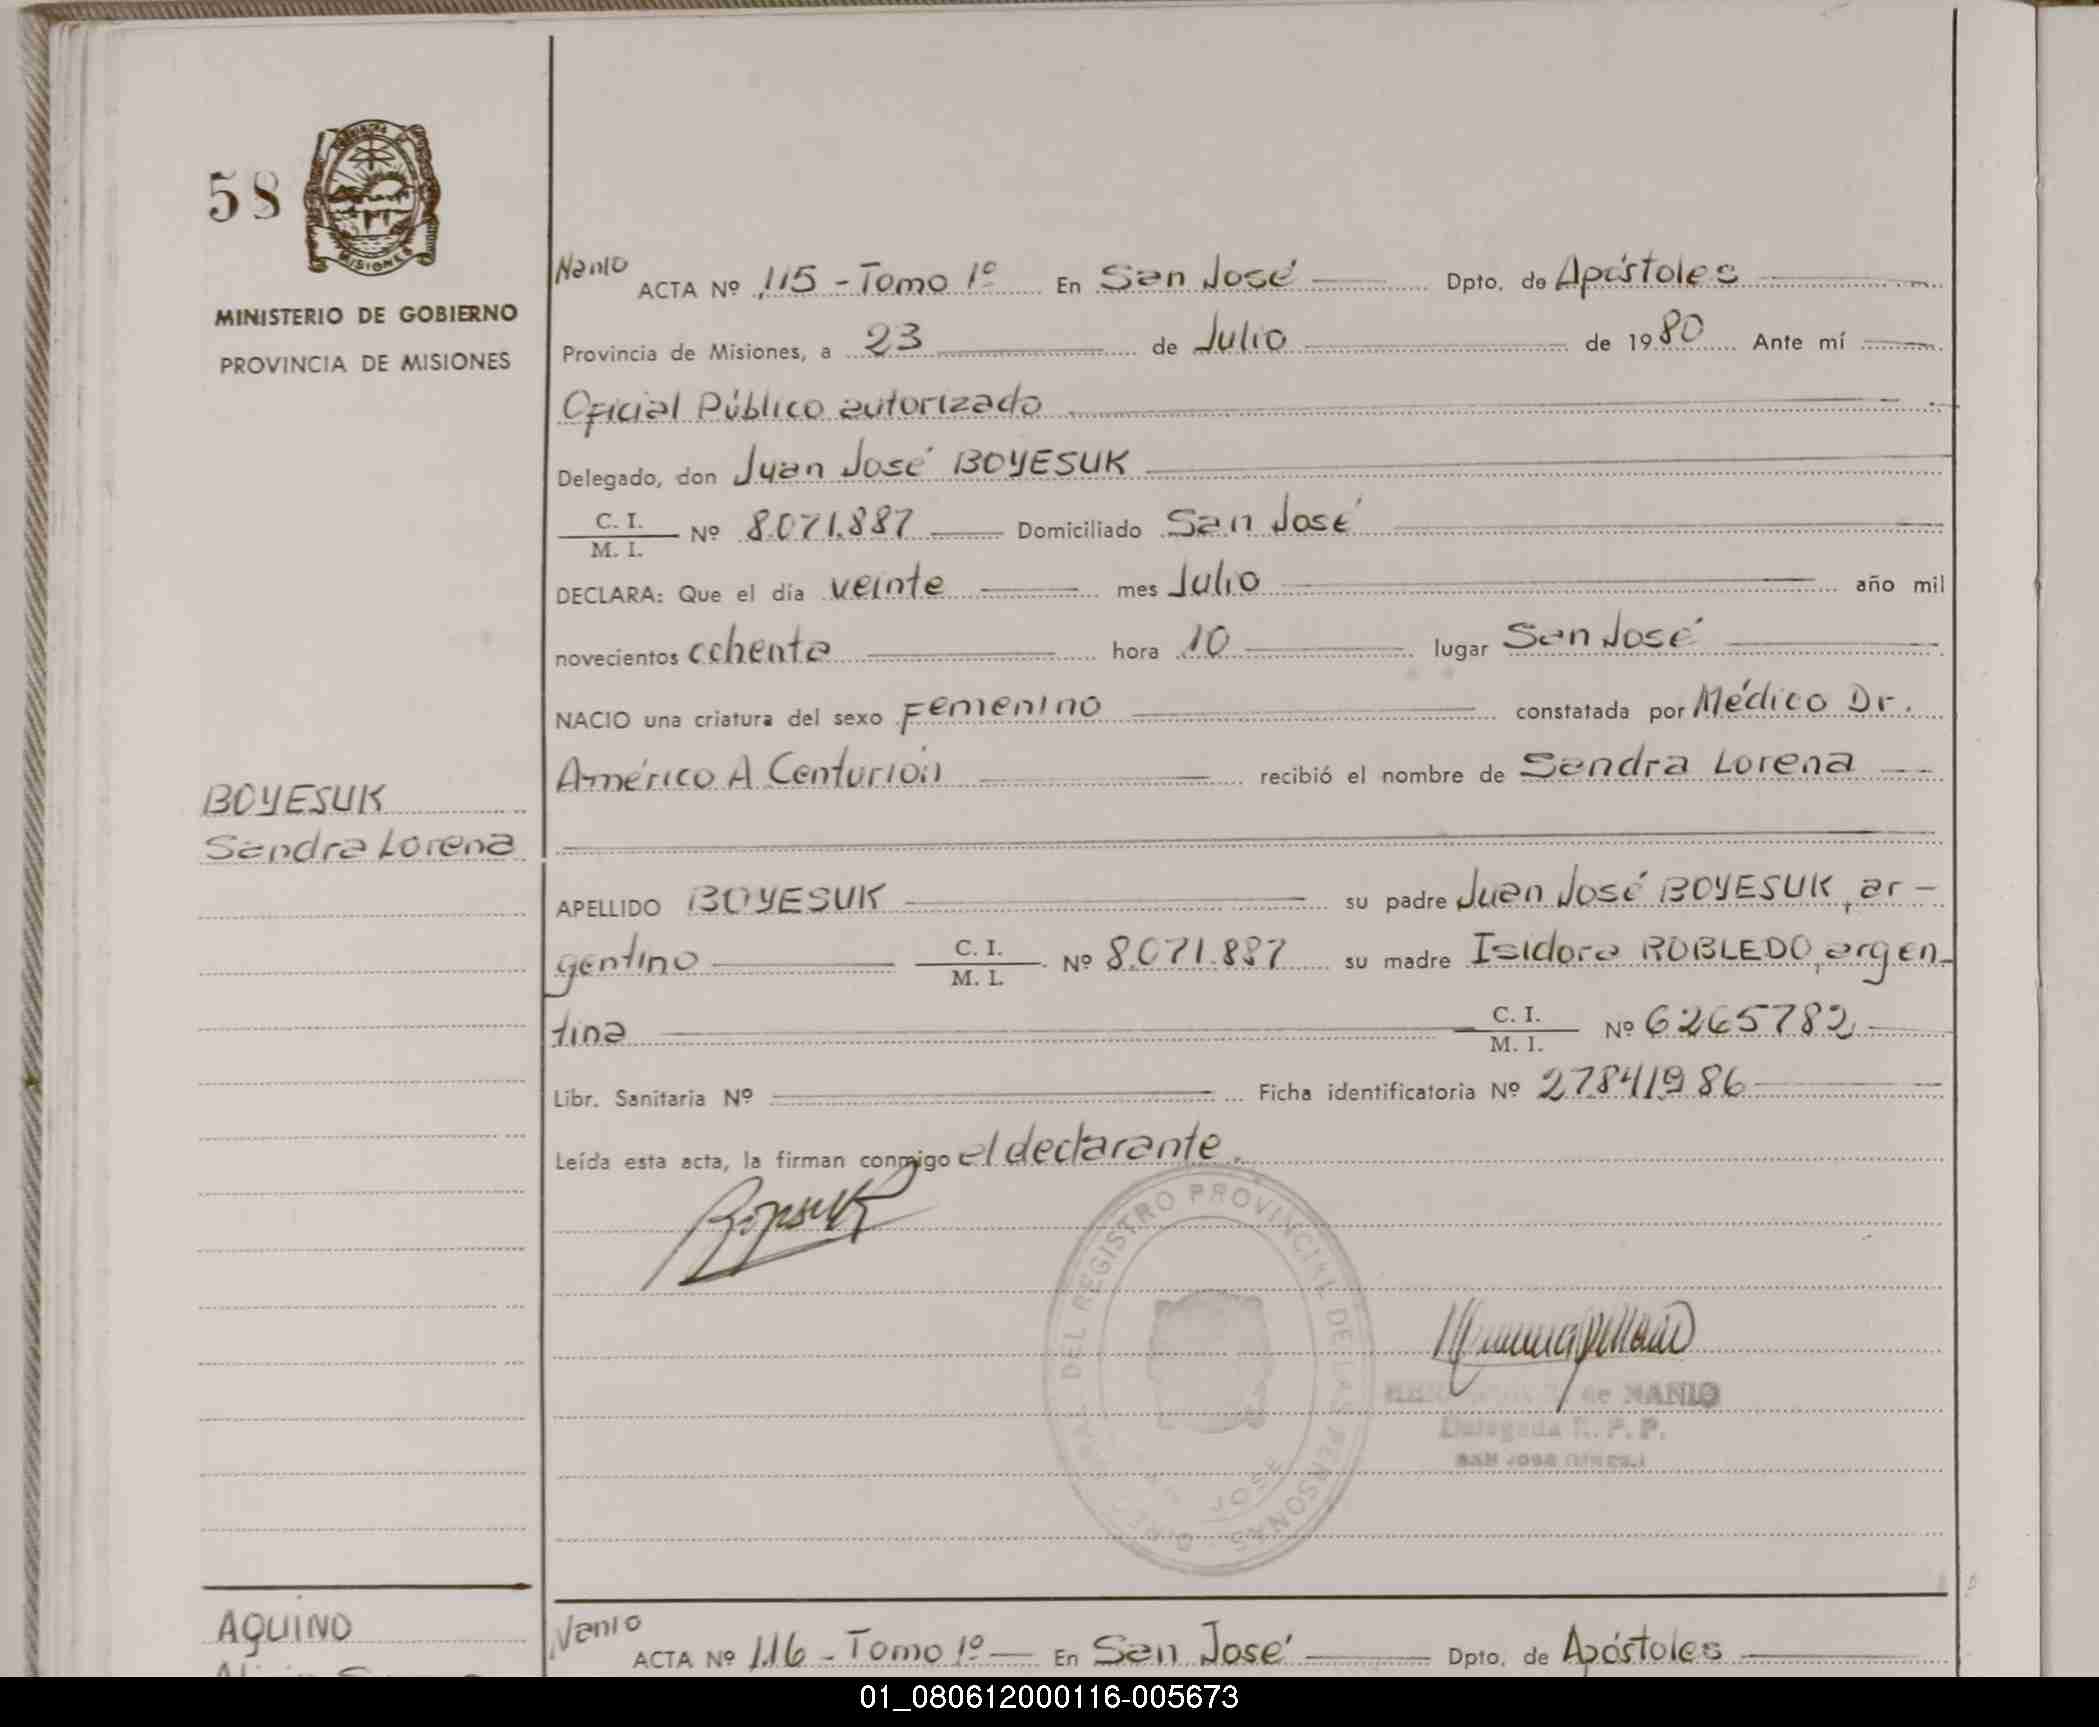 58
MISIONES
MINISTERIO DE GOBIERNO
PROVINCIA DE MISIONES
Nanio
ACTA Nº 115 - Tomo 1º En San José Dpto. de Apóstoles
Provincia de Misiones, a 23 de Julio de 1980 Ante mí
Oficial Público autorizado
Delegado, don Juan José BOYESUK
C. I.
M. I. Nº 8.071.887 Domiciliado San José
DECLARA: Que el día veinte mes Julio año mil
novecientos ochenta hora 10 lugar San José
NACIO una criatura del sexo Femenino constatada por Médico Dr.
Américo A Centurión recibió el nombre de Sandra Lorena
BOYESUK
Sandra Lorena
APELLIDO BOYESUK su padre Juan José BOYESUK, ar-
gentino C. I.
M. I. Nº 8.071.887 su madre Isidora ROBLEDO, argen-
tina C. I.
M. I. Nº 6265782
Libr. Sanitaria Nº Ficha identificatoria Nº 27841986
Leída esta acta, la firman conmigo el declarante.
Boyesuk
DEL REGISTRO PROVINCIAL DE LAS PERSONAS
JOSE
de NANIO
Delegada R. P. P.
SAN JOSE
AQUINO
Nanio
ACTA Nº 116 - Tomo 1º En San José Dpto. de Apóstoles
01_080612000116-005673